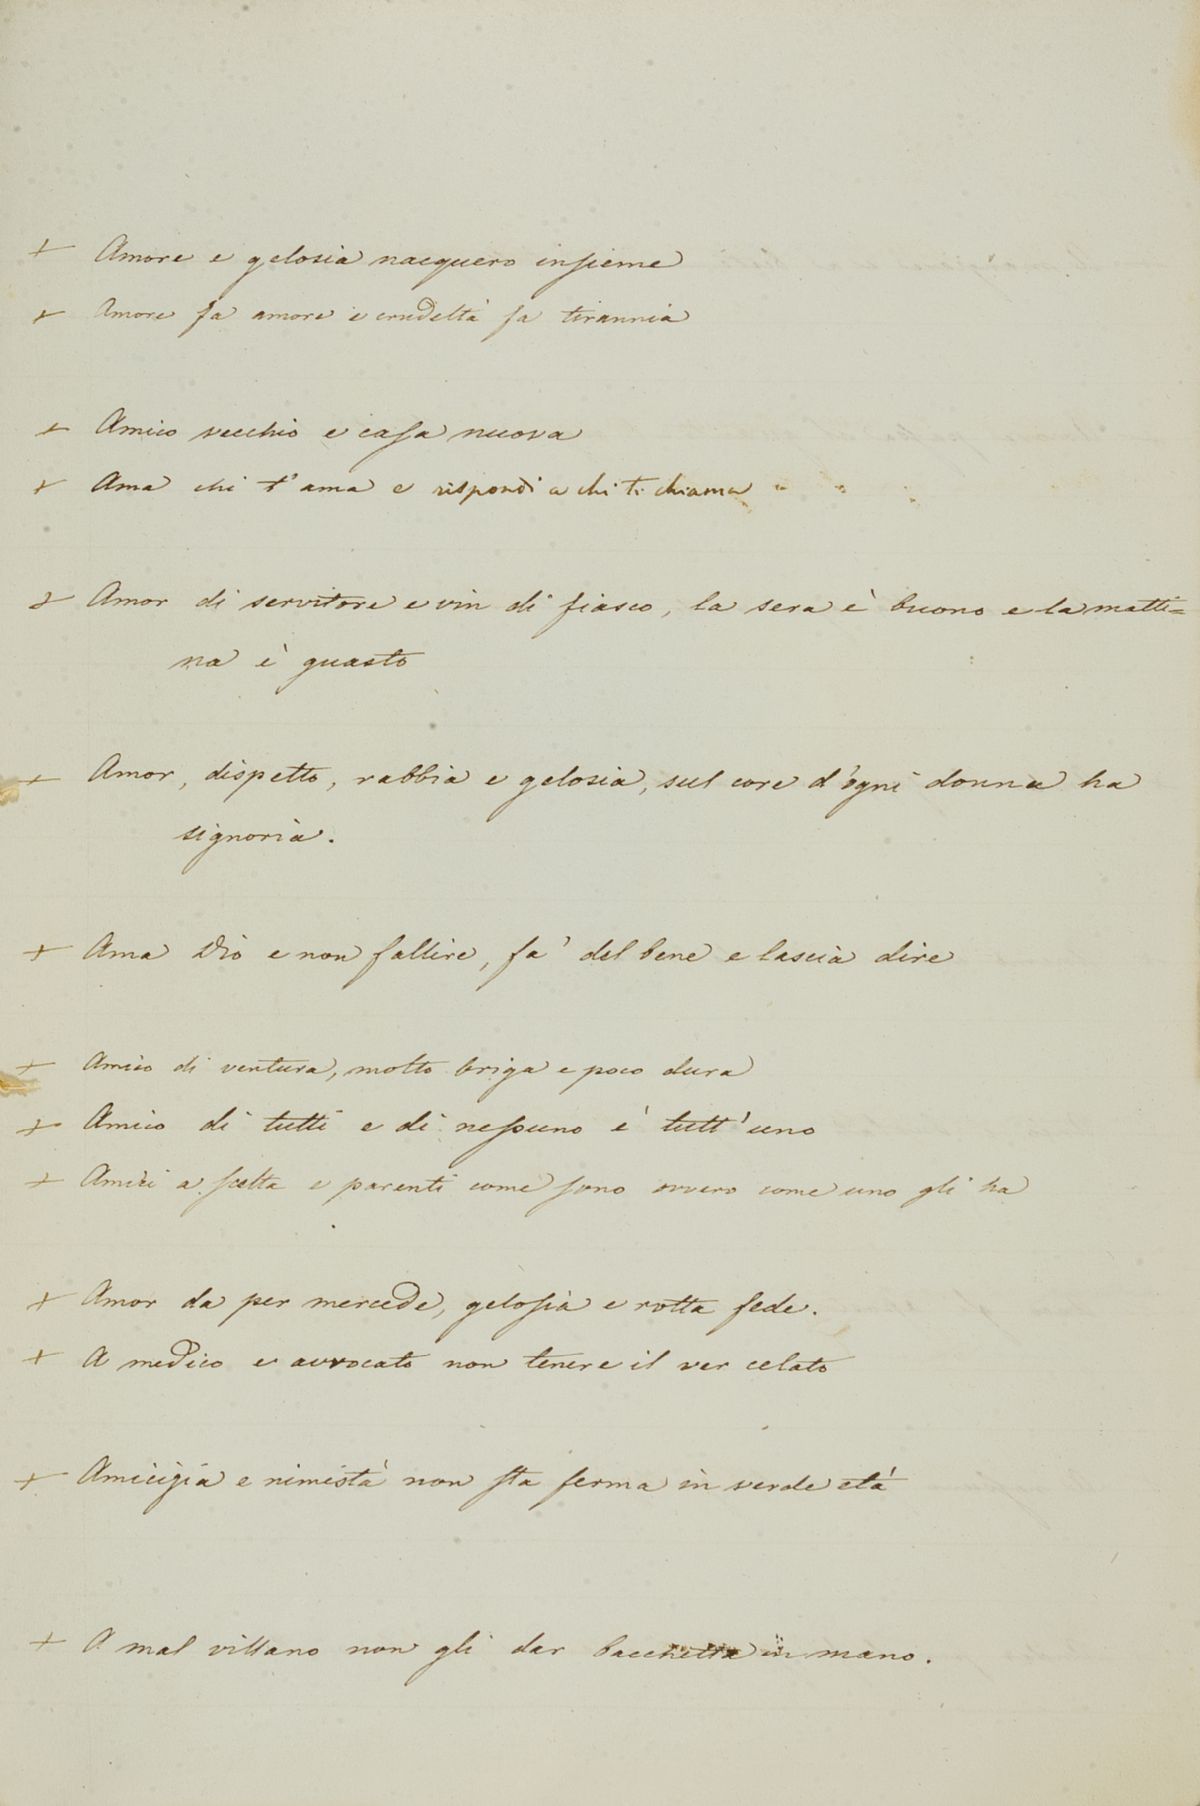 + Amore e gelosia nacquero insieme
+ Amore fa amore e crudeltà fa tirannia
+ Amico vecchio e casa nuova
+ Ama chi t'ama e rispondi a chi ti chiama
+ Amor di servitore e vin di fiasco, la sera è buono e la matti=
na è guasto
+ Amor, dispetto, rabbia e gelosia, sul core d'ogni donna ha
signoria.
+ Ama Dio e non fallire, fa' del bene e lascia dire
+ Amico di ventura, molto briga e poco dura
+ Amico di tutti e di nessuno è tutt'uno
+ Amici a scelta e parenti come sono ovvero come uno gli ha
+ Amor da per mercede, gelosia e rotta fede.
+ A medico e avvocato non tenere il ver celato
+ Amicizia e nimistà non sta ferma in verde età
+ A mal villano non gli dar bacchetta in mano.